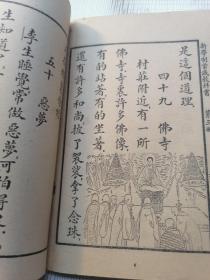 新學制
教科書 第三冊
是這個道理
四十九 佛寺
村莊附近有一所
佛寺寺裏許多佛像
有的站著有的坐著
還有許多和尚披了袈裟,拿了念珠,
五十 惡夢
李生睡覺常做惡夢可怕得
生知道